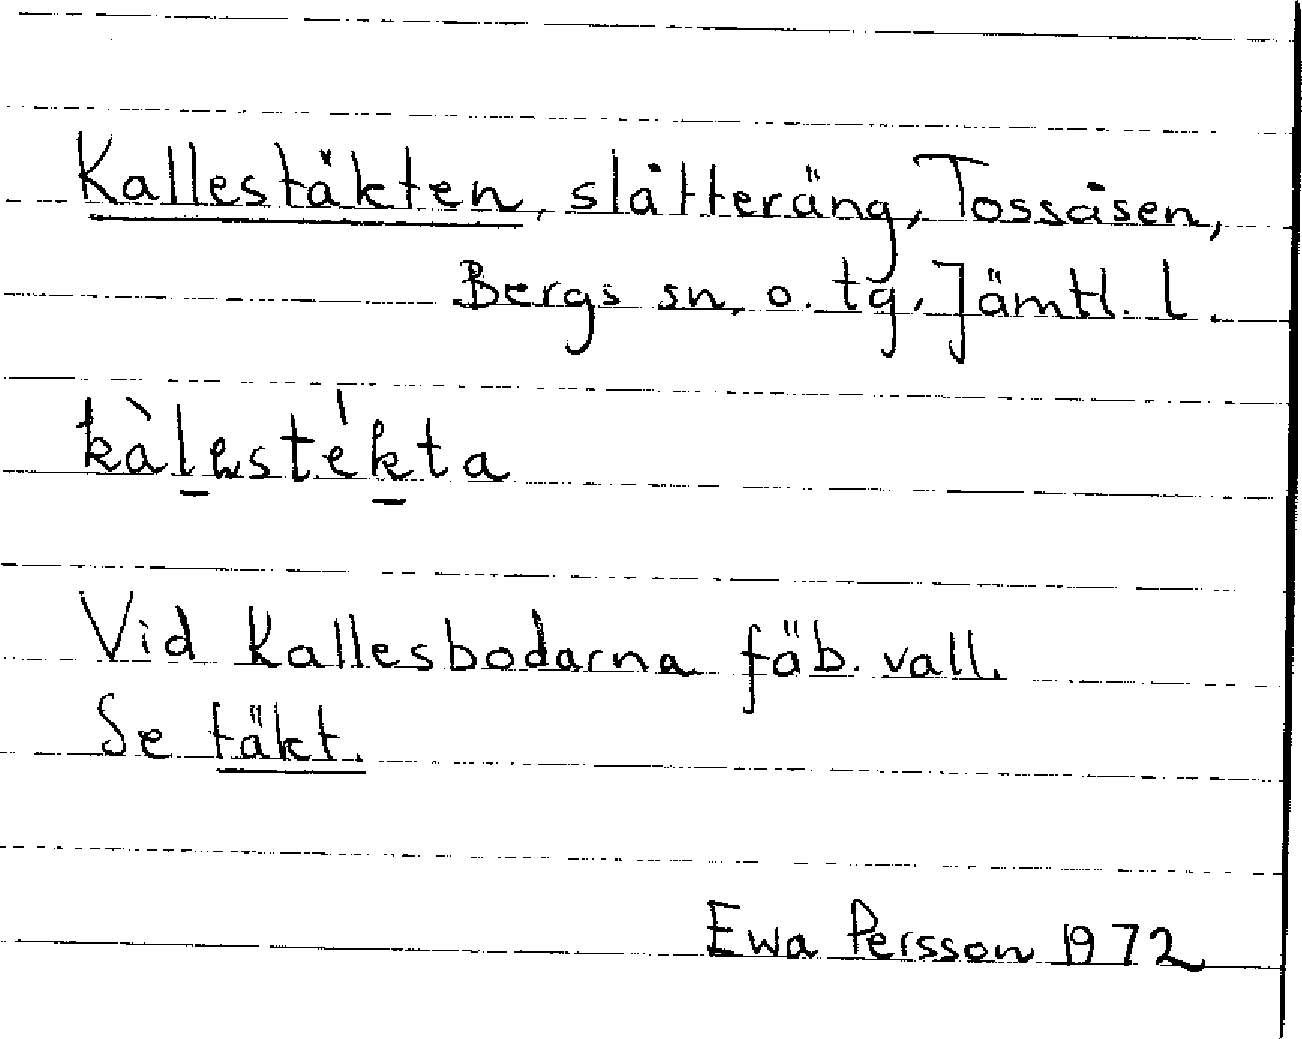 Kallestäkten, slåtteräng, Tossåsen,
Bergs sn. o. tg, Jämtl. l.
kàlestékta
Vid Kallesbodarna fäb. vall.
Se täkt.
Ewa Persson 1972